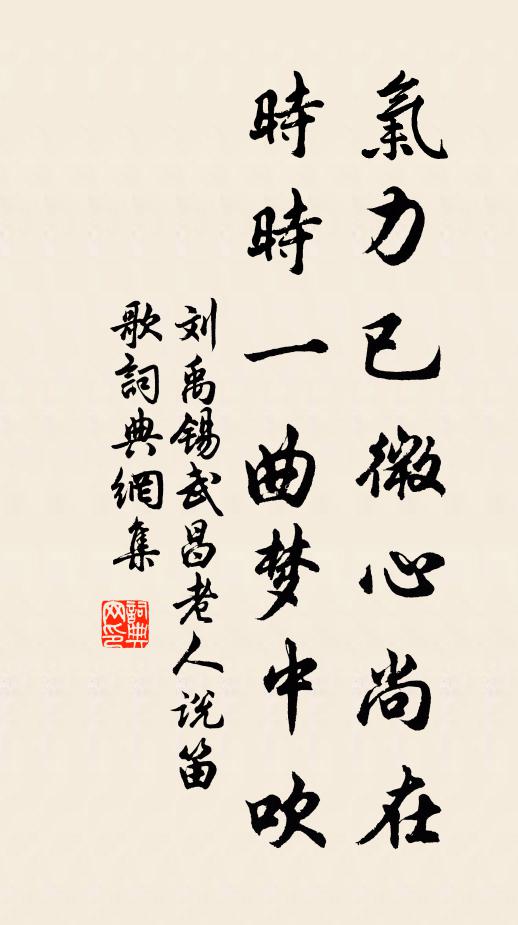 氣力已微心尚在
時時一曲梦中吹
刘禹锡武昌老人说笛
歌詞典網集
詞典
网印